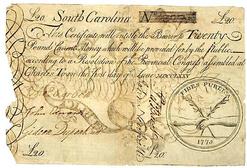 £20. South Carolina N £20.
This Certificate will entitle the Bearer to Twenty
Pounds Current Money which will be provided for by the Public
according to a Resolution of the Provincial Congress assembled at
Charles Town the first day of June MDCCLXXV
FIDES PUBLICA
1775
£20 £20